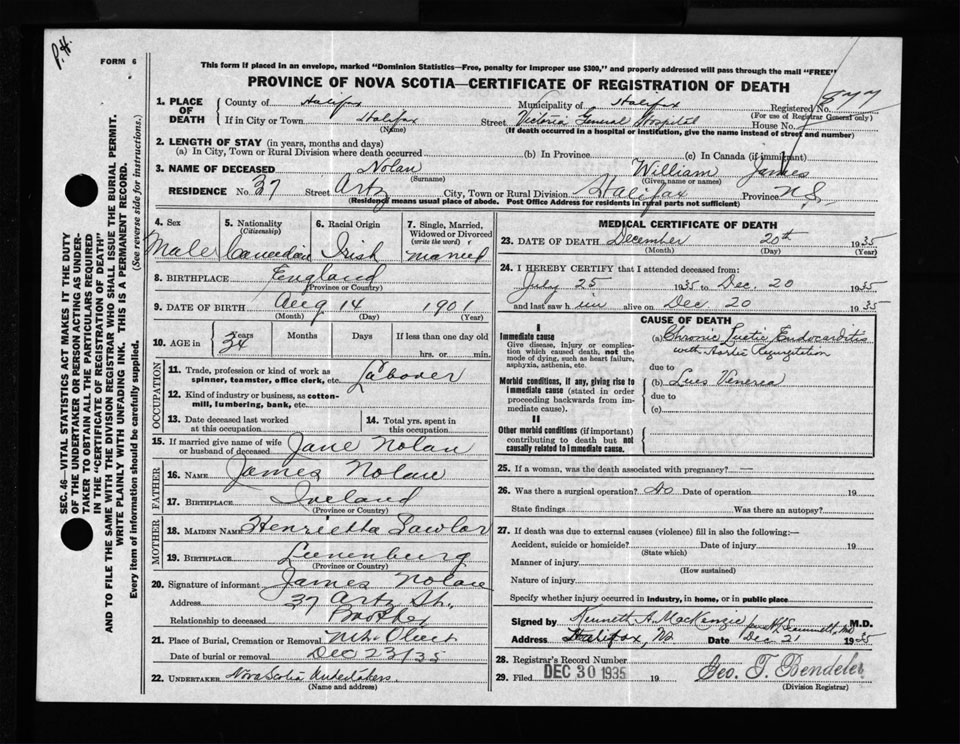 P.H.
FORM 6
This form if placed in an envelope, marked "Dominion Statistics—Free, penalty for improper use $300," and properly addressed will pass through the mail "FREE"
PROVINCE OF NOVA SCOTIA—CERTIFICATE OF REGISTRATION OF DEATH
1. PLACE OF DEATH
County of Halifax Municipality of Halifax Registered No. 877
(For use of Registrar General only)
If in City or Town Halifax Street Victoria General Hospital House No.
(Name) (If death occurred in a hospital or institution, give the name instead of street and number)
2. LENGTH OF STAY (in years, months and days)
(a) In City, Town or Rural Division where death occurred (b) In Province (c) In Canada (if immigrant)
3. NAME OF DECEASED Nolan William James
(Surname) (Given name or names)
RESIDENCE No. 37 Street Artz City, Town or Rural Division Halifax Province N.S.
(Residence means usual place of abode. Post Office Address for residents in rural parts not sufficient)
4. Sex 5. Nationality (Citizenship) 6. Racial Origin 7. Single, Married, Widowed or Divorced (write the word)
Male Canadian Irish married
8. BIRTHPLACE England
(Province or Country)
9. DATE OF BIRTH Aug 14 1901
(Month) (Day) (Year)
10. AGE in 34 Years Months Days If less than one day old
hrs. or min.
OCCUPATION
11. Trade, profession or kind of work as spinner, teamster, office clerk, etc. Laborer
12. Kind of industry or business, as cotton-mill, lumbering, bank, etc.
13. Date deceased last worked at this occupation 14. Total yrs. spent in this occupation
15. If married give name of wife or husband of deceased Jane Nolan
FATHER
16. NAME James Nolan
17. BIRTHPLACE Ireland
(Province or Country)
MOTHER
18. MAIDEN NAME Henrietta Lawlor
19. BIRTHPLACE Lunenburg
(Province or Country)
20. Signature of informant James Nolan
Address 37 Artz St.,
Relationship to deceased Brother
21. Place of Burial, Cremation or Removal Mt. Olivet
Date of burial or removal Dec 23/35
22. UNDERTAKER Nova Scotia Undertakers.
(Name and address)
MEDICAL CERTIFICATE OF DEATH
23. DATE OF DEATH December 20th 1935
(Month) (Day) (Year)
24. I HEREBY CERTIFY that I attended deceased from:
July 25 1935 to Dec. 20 1935
and last saw him alive on Dec 20 1935
CAUSE OF DEATH
I
Immediate cause
Give disease, injury or complication which caused death, not the mode of dying, such as heart failure, asphyxia, asthenia, etc.
(a) Chronic Luetic Endocarditis
with Aortic Regurgitation
due to
Morbid conditions, if any, giving rise to immediate cause (stated in order proceeding backwards from immediate cause).
(b) Lues Venerea
due to
(c)
II
Other morbid conditions (if important) contributing to death but not causally related to immediate cause.
25. If a woman, was the death associated with pregnancy? —
26. Was there a surgical operation? No Date of operation 19
State findings Was there an autopsy?
27. If death was due to external causes (violence) fill in also the following:—
Accident, suicide or homicide? Date of injury 19
(State which)
Manner of injury
(How sustained)
Nature of injury
Specify whether injury occurred in industry, in home, or in public place
Signed by Kenneth A. MacKenzie M.D.
Address Halifax, NS Date Dec 21 1935
28. Registrar's Record Number
29. Filed DEC 30 1935 19 Geo. T. Bendeler
(Division Registrar)
SEC. 46—VITAL STATISTICS ACT MAKES IT THE DUTY
OF THE UNDERTAKER OR PERSON ACTING AS UNDER-
TAKER TO OBTAIN ALL THE PARTICULARS REQUIRED
IN THE "CERTIFICATE OF REGISTRATION OF DEATH"
AND TO FILE THE SAME WITH THE DIVISION REGISTRAR WHO SHALL ISSUE THE BURIAL PERMIT.
WRITE PLAINLY WITH UNFADING INK. THIS IS A PERMANENT RECORD.
Every item of information should be carefully supplied. (See reverse side for instructions.)